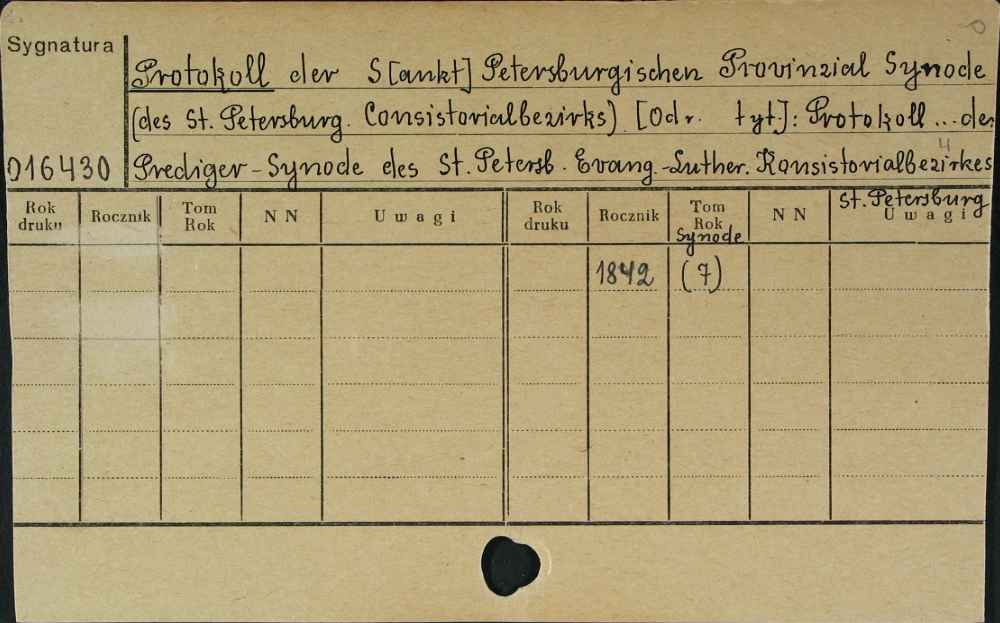 Sygnatura
Protokoll der S[ankt] Petersburgischen Provinzial Synode
(des St. Petersburg. Consistorialbezirks) [Odr. tyt.]: Protokoll ... der
016430 Prediger-Synode des St. Petersb. Evang.-Luther. Konsistorialbezirkes
4
St. Petersburg
Rok druku Rocznik Tom Rok NN Uwagi Rok druku Rocznik Tom Rok NN Uwagi
Synode
1842 (7)